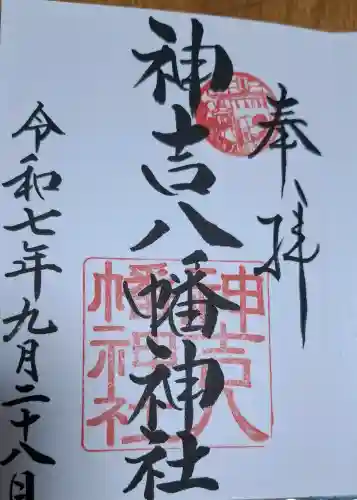 奉拝
神吉八幡神社
神吉八幡神社
令和七年九月二十八日